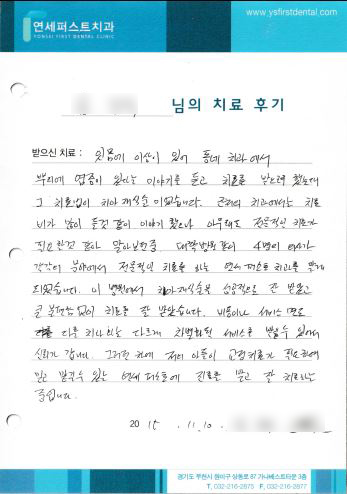 연세퍼스트치과
YONSEI FIRST DENTAL CLINIC
www.ysfirstdental.com
님의 치료 후기
받으신 치료: 잇몸에 이상이 있어 동네 치과에서
뿌리에 염증이 있다는 이야기를 듣고 치료를 받으려 했는데
그 치료법이 치아 재식술 이었습니다. 근처의 치과에서는 치료
비가 많이 들것 같이 이야기 했으나 아무래도 전문적인 치료가
필요한것 같아 알아보던중 대학병원같이 4명의 의사가
각각의 분야에서 전문적인 치료를 하는 연세 퍼스트 치과를 알게
되었습니다. 이 병원에서 치아재식술을 성공적으로 잘 받았고
큰 불편함 없이 치료를 잘 받았습니다. 비용이나 서비스 면도
다른 치과와는 다르게 차별화된 서비스를 받을수 있어서
신뢰가 갑니다. 그러던 차에 저의 아들이 교정치료가 필요하여
믿고 맡길수 있는 연세 퍼스트에 진료를 받고 잘 치료되는
중입니다.
2015. 11. 10.
경기도 부천시 원미구 상동로 87 가나베스트타운 3층
T. 032-216-2875 F. 032-216-2877